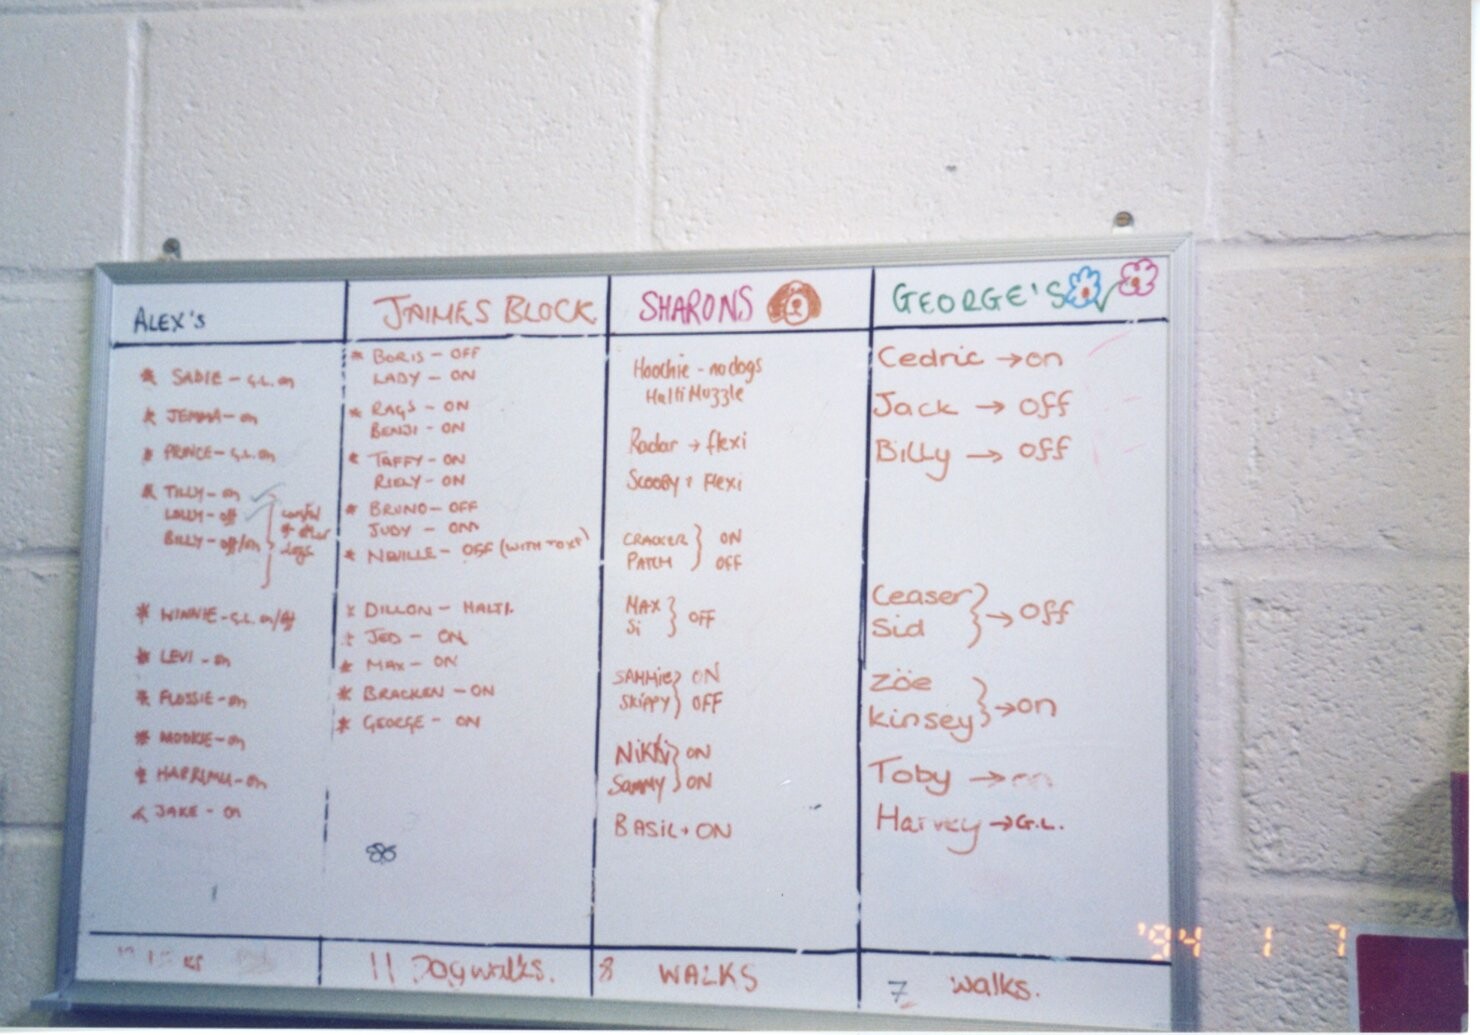 ALEX'S
* SADIE - G.L. on
* JEMMA - on
* PRINCE - G.L. on
* TILLY - on
LOLLY - off
BILLY - off/on
careful
dogs
* WINNIE - G.L. on/off
* LEVI - on
* FLOSSIE - on
* MOOKIE - on
* JAKE - on
JAIMES BLOCK
* BORIS - OFF
LADY - ON
* RAGS - ON
BENJI - ON
* TAFFY - ON
RILEY - ON
* BRUNO - OFF
JUDY - ON
* NEVILLE - OFF (WITH TOY)
* DILLON - HALTI.
* JED - ON
* MAX - ON
* BRACKEN - ON
* GEORGE - ON
11 Dogwalks.
SHARONS
Hoochie - no dogs
Halti Muzzle
Radar → flexi
Scooby → Flexi
CRACKER } ON
PATCH } OFF
MAX
Si } OFF
SAMMIE } ON
SKIPPY } OFF
Nikki } ON
Sammy } ON
BASIL → ON
8 WALKS
GEORGE'S
Cedric → on
Jack → Off
Billy → Off
Ceaser
Sid } → Off
Zöe
Kinsey } → on
Toby → on
Harvey → G.L.
7 walks.
'94 1 7